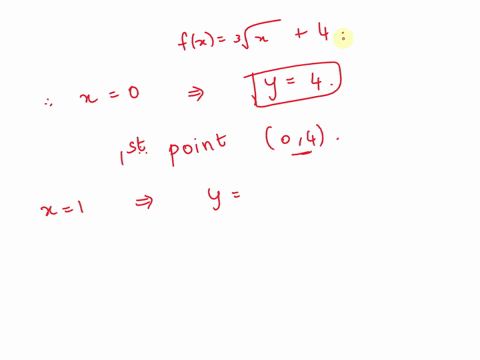 f(x) = ∛x + 4 :
∴ x = 0 ⇒ y = 4.
1st point (0,4).
x = 1 ⇒ y =